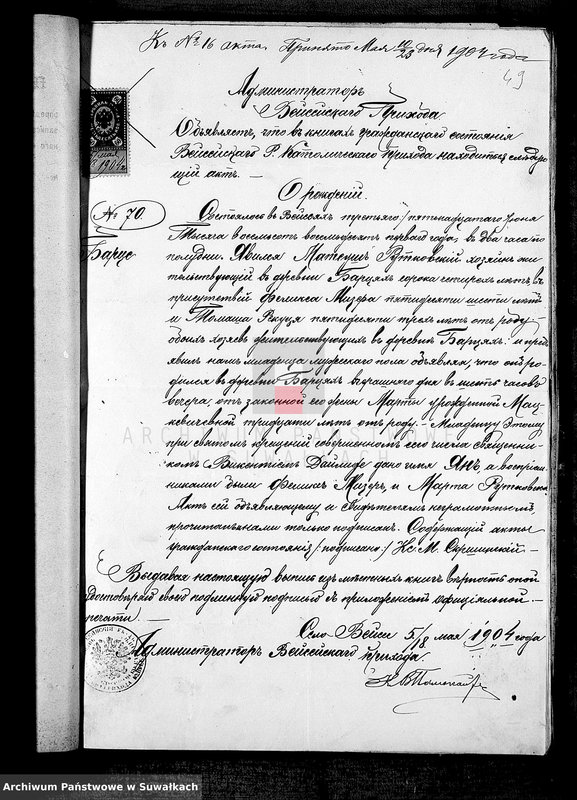 Къ № 16 акта. Принято Мая 10/23 дня 1904 года
49
Администраторъ
Вейссійскаго Прихода
Объявляетъ, что въ книгахъ гражданскаго состоянія
Вейссійскаго Р. Католическаго прихода находится слѣдую-
щій актъ. —
О рожденіи.
№ 70.
Барцы
Состоялось въ Вейсеяхъ третьяго /: пятнадцатаго Іюня
Тысяча восемьсотъ восемьдесятъ перваго года, въ два часа по
полудни. Явился Матеушъ Рутковскій хозяинъ жи-
тельствующій въ деревни Барцяхъ сорока четырехъ лѣтъ, въ
присутствіи Феликса Мизера пятидесяти шести лѣтъ
и Томаша пятидесяти трехъ лѣтъ отъ роду
обоихъ хозяевъ жительствующихъ въ деревнѣ Барцяхъ: и предъ-
явилъ намъ младенца мужескаго пола объявляя, что онъ ро-
дился въ деревни Барцяхъ вчерашняго дня въ шесть часовъ
вечера, отъ законной его жены Марты урожденной Мац-
кевичевной тридцати лѣтъ отъ роду. — Младенцу этому
при святомъ крещеніи совершенномъ его числа Священни-
комъ Викентіемъ дано имя Янъ, а воспріем-
никами были Феликсъ Мизеръ, и Марта Рутковска.
Актъ сей объявляющему и Свидѣтелямъ неграмотнымъ
прочитанъ нами только подписанъ. Содержащій акты
гражданскаго состоянія /: подписано :/ Кс. М. —
Выдавая настоящую выпись изъ мѣстныхъ книгъ вѣрность оной
удостовѣряю своей подлинную подписью съ приложеніемъ оффиціальной
печати. —
Село Вейсее 5/18 мая 1904 года
Администраторъ Вейссійскаго прихода.
ARCHIWUM PAŃSTWOWE
W SUWAŁKACH
Archiwum Państwowe w Suwałkach